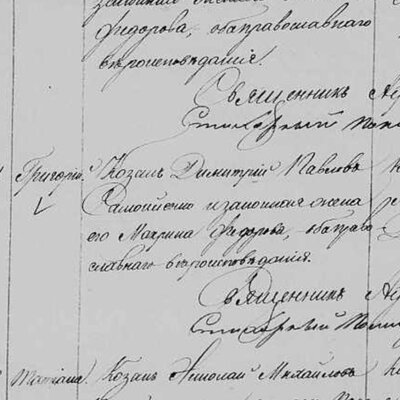 законная
Федорова, оба православнаго
вѣроисповѣданія.
Священникъ
Григорій. Козакъ Димитрій Павловъ
Самойленко и законная жена
его Марина Федорова, оба право-
славнаго вѣроисповѣданія.
Священникъ
Татіана. Козакъ Николай Михайловъ